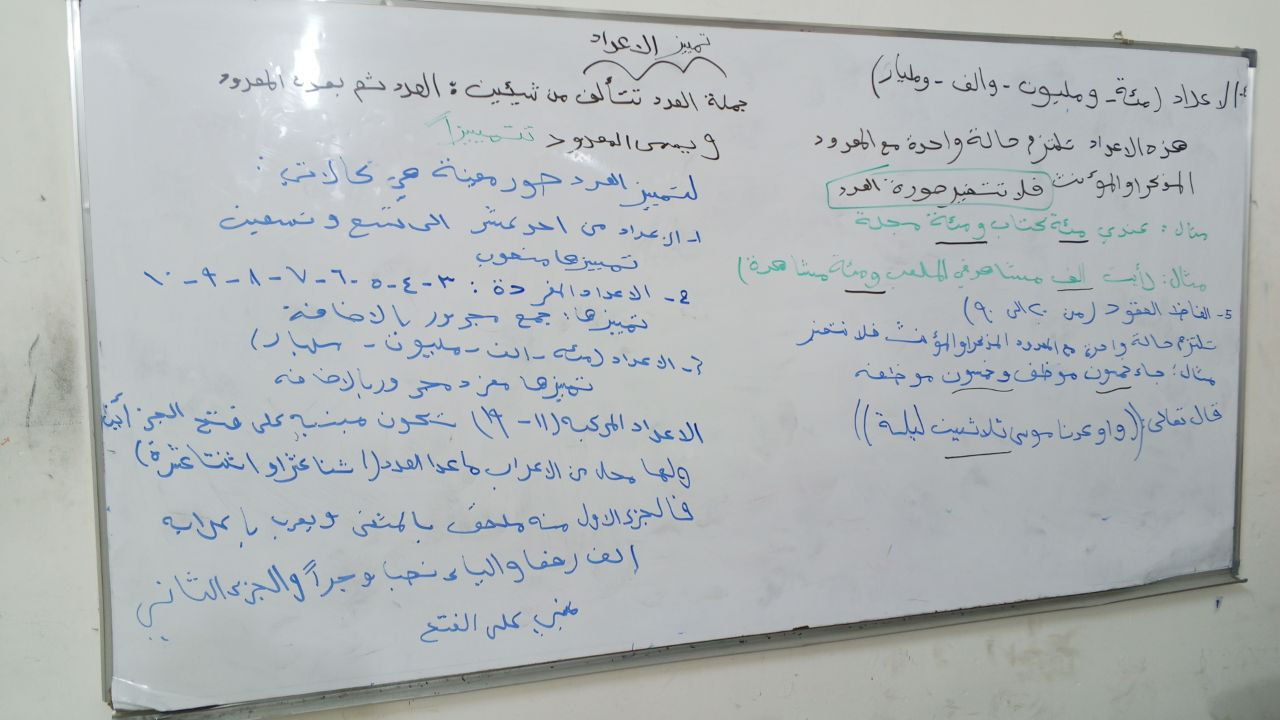 تمييز الاعداد
جملة العدد تتألف من شيئين : العدد ثم بعده المعدود
ويسمى المعدود تتمييزاً
لتمييز العدد صور معينة هي كالاتي :
1- الاعداد من احد عشر الى تسع وتسعين
تمييزها منصوب
2- الاعداد المفردة : ٣-٤-٥-٦-٧-٨-٩-١٠
تمييزها : جمع مجرور بالاضافة
3- الاعداد (مئه - الف - مليون - مليار)
تميزها مفرد مجرور بالاضافه
الاعداد المركبه (١١-١٩) تكون مبنيه على فتح الجزأين
ولها محل من الاعراب ماعدا العدد (اثنا عشر او اثنتا عشرة)
فالجزء الاول منه ملحق بالمثنى ويعرب بإعرابه
الف رفعا والياء نصبا وجراً والجزء الثاني
مبني على الفتح
4- الاعداد (مئة - ومليون - والف - ومليار)
هذه الاعداد تلتزم حالة واحدة مع المعدود
المذكر او المؤنث فلا تتغير صورة العدد
مثال : عندي مئة كتاب ومئة مجلة
مثال : رأيت الف مشاهد في الملعب ومئة مشاهدة)
5- الفاظ العقود (من ٢٠ الى ٩٠)
تلتزم حالة واحدة مع المعدود المذكر او المؤنث فلا تتغير
مثال : جاء خمسون موظف وخمسون موظفه
قال تعالى : ((وواعدنا موسى ثلاثين ليلة))